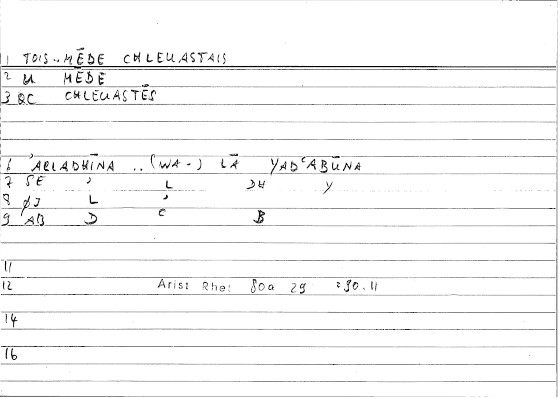 1 TOIS.. MĒDE CHLEUASTAIS
2 U MĒDE
3 QC CHLEUASTĒS
6 'ALLADHĪNA .. (WA-) LĀ YADʿABŪNA
7 SE ' L DH Y
8 ØJ L '
9 'AB D C B
11
12 Arist Rhet 80a 29 :90.11
14
16